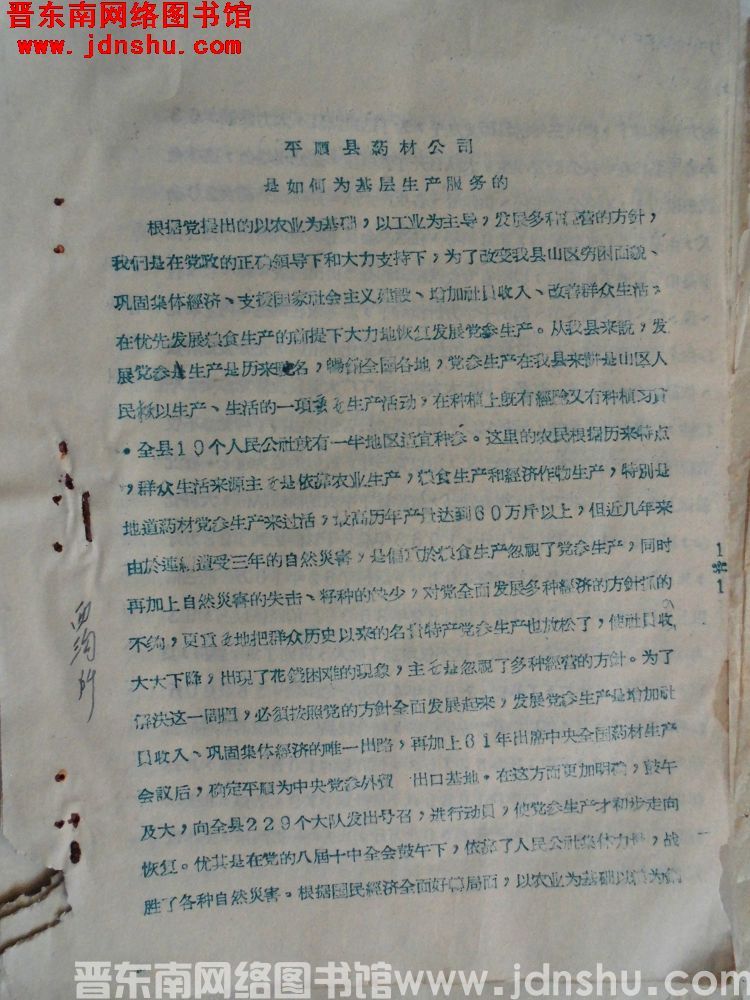 晋东南网络图书馆
www.jdnshu.com
平顺县药材公司
是如何为基层生产服务的
根据党提出的以农业为基础，以工业为主导，发展多种经营的方针，
我们是在党政的正确领导下和大力支持下，为了改变我县山区穷困面貌、
巩固集体經济、支援国家社会主义建設、增加社員收入、改善群众生活，
在优先发展粮食生产的前提下大力地恢复发展党参生产。从我县来說，发
展党参生产是历来聞名，暢銷全国各地，党参生产在我县来講是山区人
民賴以生产、生活的一項重要生产活动，在种植上既有經驗又有种植习貫
。全县19个人民公社就有一半地区适宜种参。这里的农民根据历来特点
，群众生活来源主要是依靠农业生产，粮食生产和經济作物生产，特別是
地道药材党参生产来过活，最高历年产量达到60万斤以上，但近几年来
由於連續遭受三年的自然災害，是偏重於粮食生产忽視了党参生产，同时
再加上自然災害的失击、籽种的缺少，对党全面发展多种經济的方針抓的
不够，更重要地把群众历史以来的名貴特产党参生产也放松了，使社員收
大大下降，出現了花錢困难的現象，主要是忽視了多种經营的方針。为了
解决这一問題，必須按照党的方針全面发展起来，发展党参生产是增加社
員收入、巩固集体經济的唯一出路，再加上61年出席中央全国药材生产
会議后，确定平順为中央党参外貿 出口基地。在这方面更加明确，鼓午
及大，向全县229个大队发出号召，进行动員，使党参生产才和步走向
恢复。优其是在党的八届十中全会鼓午下，依靠了人民公社集体力量，战
胜了各种自然災害。根据国民經济全面好轉局面，以农业为基础以粮为綱
1
1
西沟 所
晋东南网络图书馆www.jdnshu.com